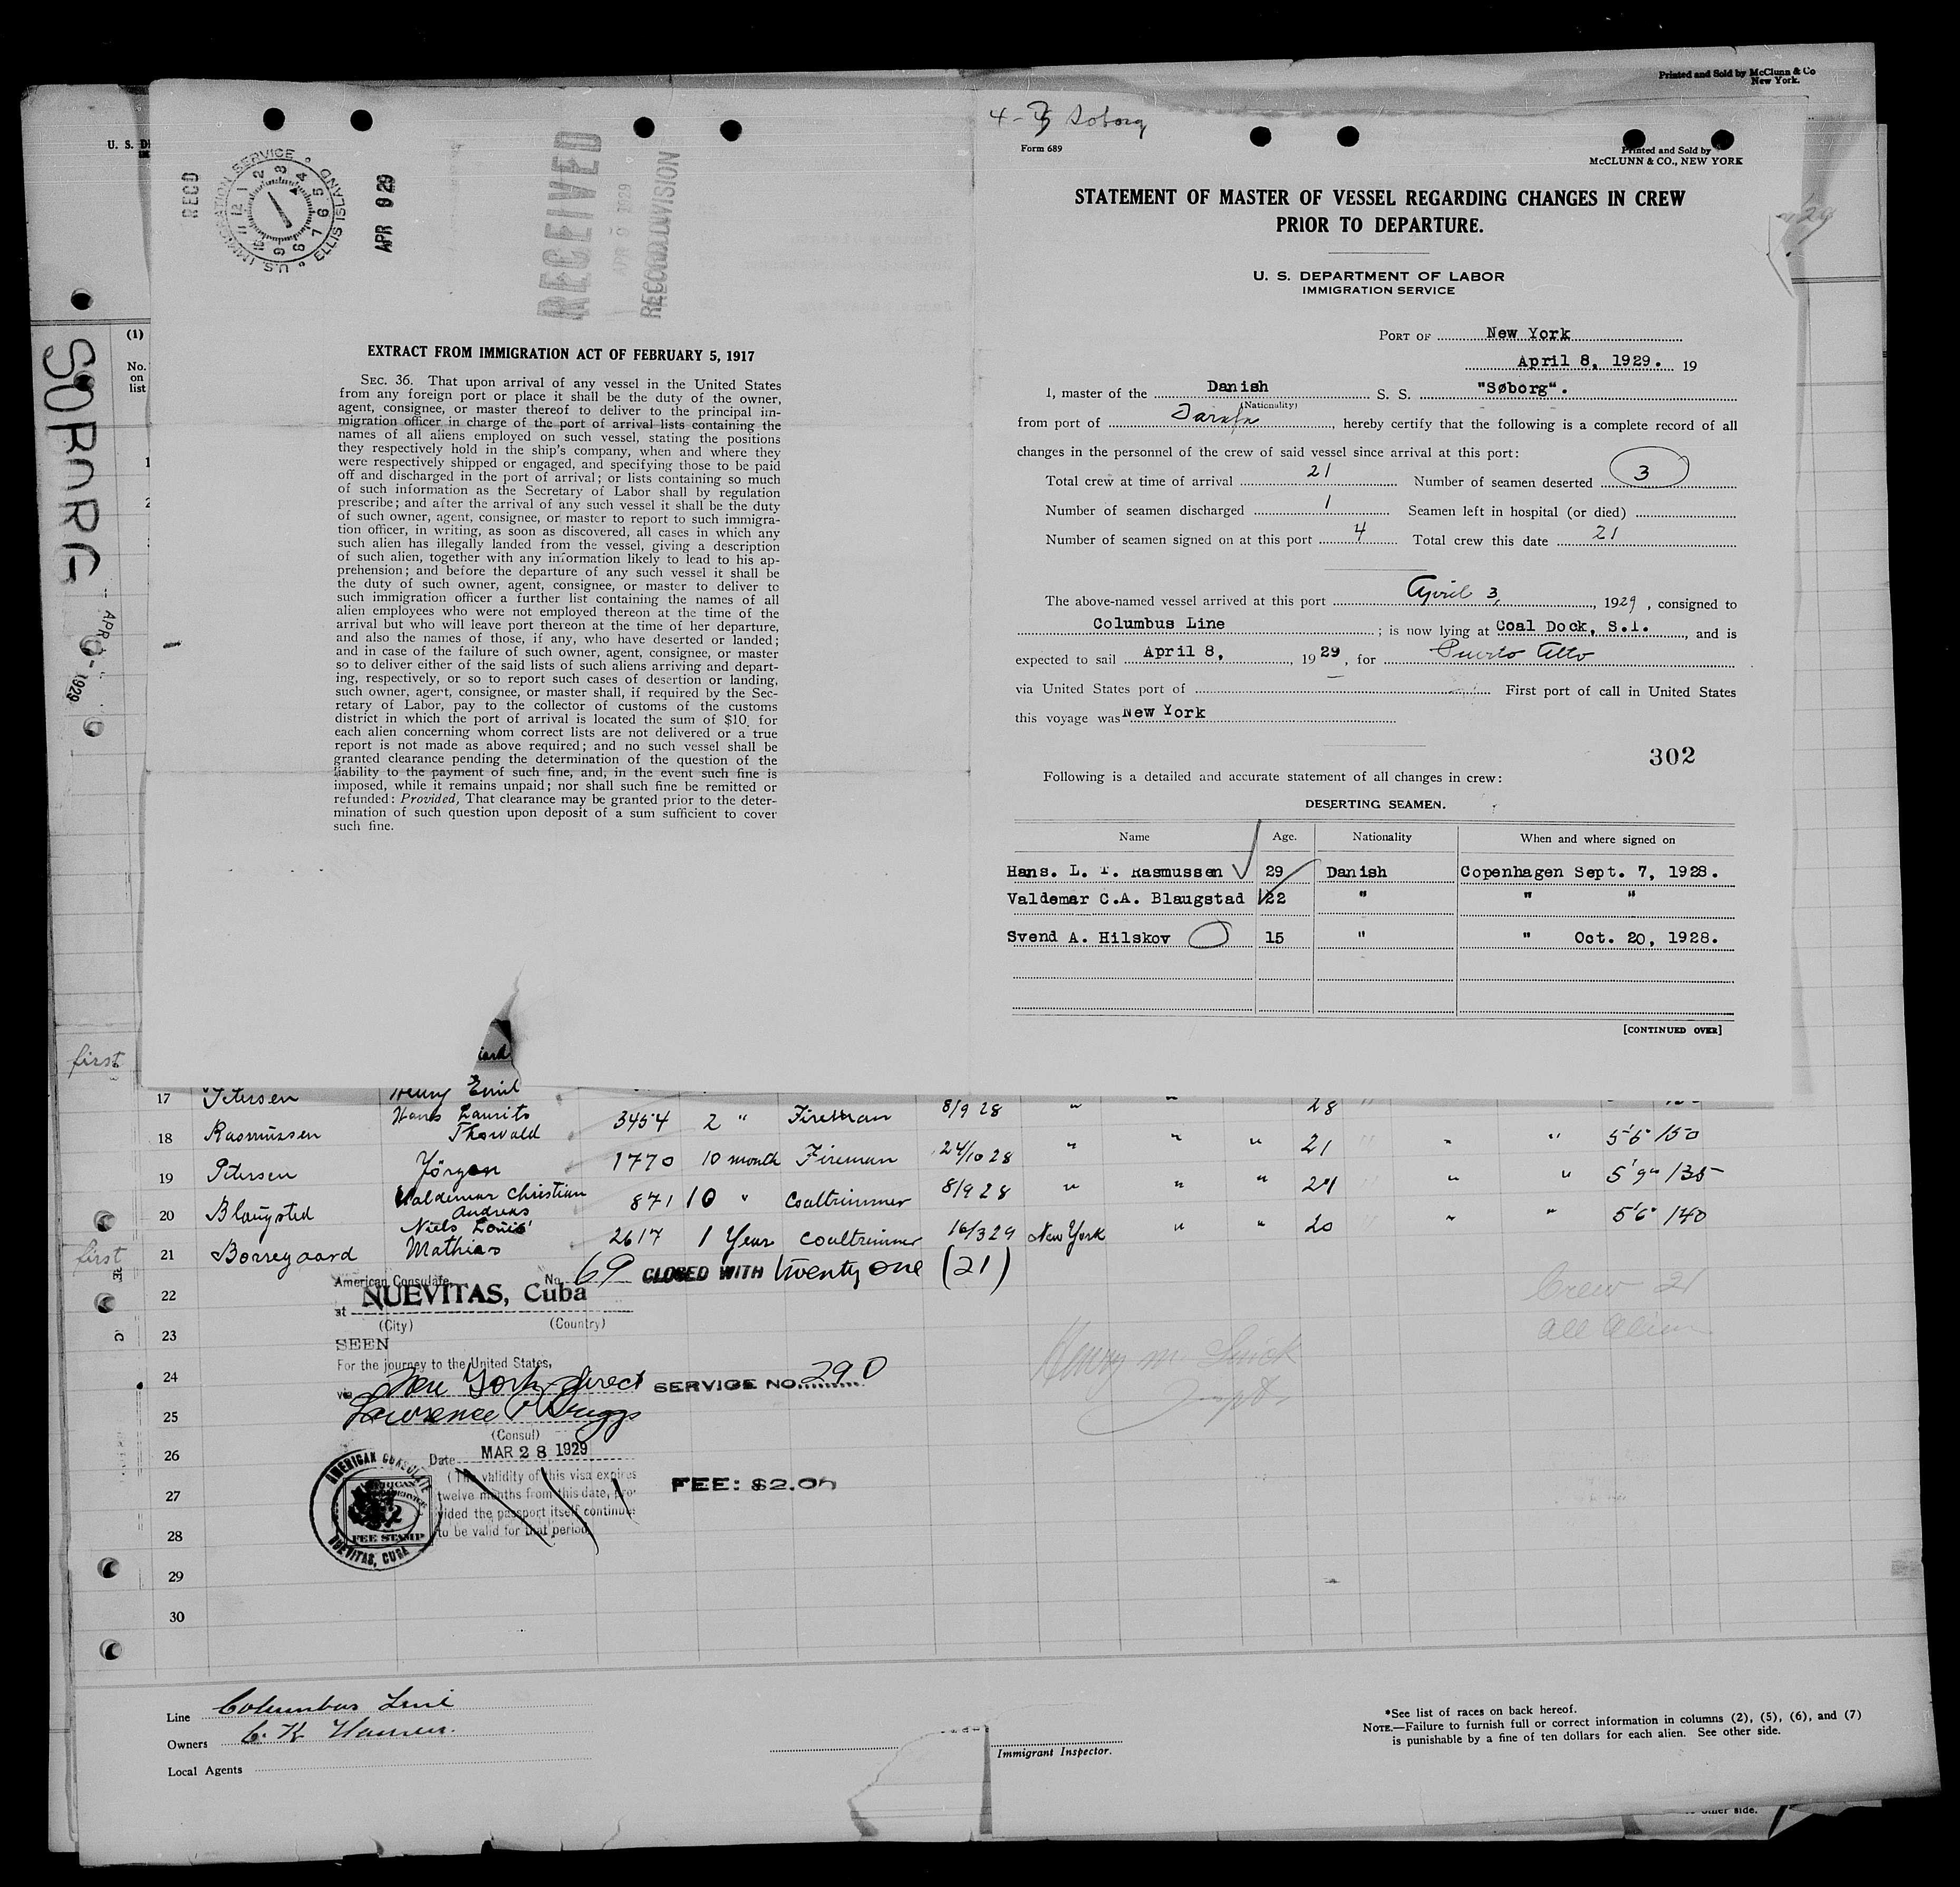 Printed and Sold by McClunn & Co
New York.
U. S. D
RECD
U.S. IMMIGRATION SERVICE • ELLIS ISLAND •
1 2 3 4 5 6 7 8 9 10 11 12
APR 9 29
RECEIVED
APR 9 1929
RECORD DIVISION
EXTRACT FROM IMMIGRATION ACT OF FEBRUARY 5, 1917
SEC. 36. That upon arrival of any vessel in the United States
from any foreign port or place it shall be the duty of the owner,
agent, consignee, or master thereof to deliver to the principal im-
migration officer in charge of the port of arrival lists containing the
names of all aliens employed on such vessel, stating the positions
they respectively hold in the ship's company, when and where they
were respectively shipped or engaged, and specifying those to be paid
off and discharged in the port of arrival; or lists containing so much
of such information as the Secretary of Labor shall by regulation
prescribe; and after the arrival of any such vessel it shall be the duty
of such owner, agent, consignee, or master to report to such immigra-
tion officer, in writing, as soon as discovered, all cases in which any
such alien has illegally landed from the vessel, giving a description
of such alien, together with any information likely to lead to his ap-
prehension; and before the departure of any such vessel it shall be
the duty of such owner, agent, consignee, or master to deliver to
such immigration officer a further list containing the names of all
alien employees who were not employed thereon at the time of the
arrival but who will leave port thereon at the time of her departure,
and also the names of those, if any, who have deserted or landed;
and in case of the failure of such owner, agent, consignee, or master
so to deliver either of the said lists of such aliens arriving and depart-
ing, respectively, or so to report such cases of desertion or landing,
such owner, agert, consignee, or master shall, if required by the Sec-
retary of Labor, pay to the collector of customs of the customs
district in which the port of arrival is located the sum of $10 for
each alien concerning whom correct lists are not delivered or a true
report is not made as above required; and no such vessel shall be
granted clearance pending the determination of the question of the
liability to the payment of such fine, and, in the event such fine is
imposed, while it remains unpaid; nor shall such fine be remitted or
refunded: Provided, That clearance may be granted prior to the deter-
mination of such question upon deposit of a sum sufficient to cover
such fine.
Soborg
Form 689
Printed and Sold by
McCLUNN & CO., NEW YORK
STATEMENT OF MASTER OF VESSEL REGARDING CHANGES IN CREW
PRIOR TO DEPARTURE.
U. S. DEPARTMENT OF LABOR
IMMIGRATION SERVICE
PORT OF New York
April 8, 1929. 19
I, master of the Danish S. S. "Søborg".
(Nationality)
from port of Tarafa, hereby certify that the following is a complete record of all
changes in the personnel of the crew of said vessel since arrival at this port:
Total crew at time of arrival 21 Number of seamen deserted 3
Number of seamen discharged 1 Seamen left in hospital (or died)
Number of seamen signed on at this port 4 Total crew this date 21
The above-named vessel arrived at this port April 3, 1929, consigned to
Columbus Line; is now lying at Coal Dock, S.I., and is
expected to sail April 8, 1929, for
via United States port of First port of call in United States
this voyage was New York
302
Following is a detailed and accurate statement of all changes in crew:
DESERTING SEAMEN.
Name Age. Nationality When and where signed on
Hans. L. T. Rasmussen 29 Danish Copenhagen Sept. 7, 1928.
Valdemar C.A. Blaugstad 22 " " "
Svend A. Hilskov 15 " " Oct. 20, 1928.
[CONTINUED OVER]
SOBORG
APR 1929
(1)
No.
on
list
first
17 Petersen Henry Emil
18 Rasmussen Hans Laurits Thorvald 3454 2 " Fireman 8/9 28 " " 28
19 Petersen Jörgen 1770 10 month Fireman 24/10 28 " " " 21 " " 5'6" 150
20 Blaugsted Valdemar Christian Andreas 871 10 " Coaltrimmer 8/9 28 " " " 21 " " 5'9" 135
first
21 Borregaard Niels Louis Mathias 2617 1 Year Coaltrimmer 16/3 29 New York " " 20 " " 5'6" 140
American Consulate No. 69 CLOSED WITH twenty one (21)
at NUEVITAS, Cuba
(City) (Country)
22
23
24
25
26
27
28
29
30
SEEN
For the journey to the United States,
via New York direct SERVICE NO. 290
Lawrence P. Briggs
(Consul)
Date MAR 28 1929
(The validity of this visa expires
twelve months from this date, pro-
vided the passport itself continues
to be valid for that period
FEE: $2.00
AMERICAN CONSULATE
FEE STAMP
NUEVITAS, CUBA
Crew 21
all alien
Line Columbus Line
Owners C. K. Hansen.
Local Agents
Immigrant Inspector.
*See list of races on back hereof.
NOTE.—Failure to furnish full or correct information in columns (2), (5), (6), and (7)
is punishable by a fine of ten dollars for each alien. See other side.
other side.